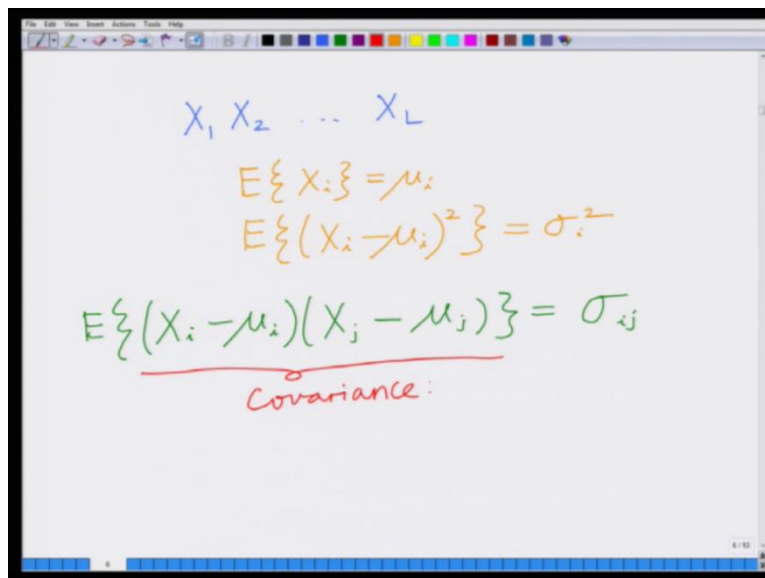 File Edit View Insert Actions Tools Help
B I
X₁ X₂ ... X_L
E{X_i} = μ_i
E{(X_i - μ_i)²} = σ_i²
E{(X_i - μ_i)(X_j - μ_j)} = σ_ij
Covariance:
6 / 93
6